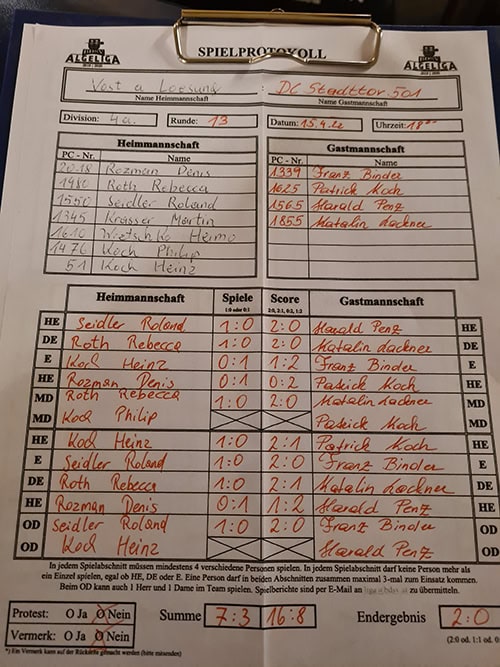 SPIELPROTOKOLL
ALGELIGA ALGELIGA
Vost a Loesung : DC Stadttor 501
Name Heimmannschaft Name Gastmannschaft
Division: 4a. Runde: 13 Datum: 15.4.22 Uhrzeit: 18⁰⁰
Heimmannschaft Gastmannschaft
PC - Nr. Name PC - Nr. Name
2018 Rozman Denis 1339 Franz Binder
1980 Roth Rebecca 1625 Patrick Koch
1550 Seidler Roland 1565 Harald Penz
1345 Krasser Martin 1855 Natalin Lackner
1610 Heimo
1476 Koch Philip
51 Koch Heinz
Heimmannschaft Spiele Score Gastmannschaft
1:0 oder 0:1 2:0, 2:1, 0:2, 1:2
HE Seidler Roland 1:0 2:0 Harald Penz HE
DE Roth Rebecca 1:0 2:0 Natalin Lackner DE
E Koch Heinz 0:1 1:2 Franz Binder E
HE Rozman Denis 0:1 0:2 Patrick Koch HE
MD Roth Rebecca 1:0 2:0 Natalin Lackner MD
MD Koch Philip Patrick Koch MD
HE Koch Heinz 1:0 2:1 Patrick Koch HE
E Seidler Roland 1:0 2:0 Franz Binder E
DE Roth Rebecca 1:0 2:1 Natalin Lackner DE
HE Rozman Denis 0:1 1:2 Harald Penz HE
OD Seidler Roland 1:0 2:0 Franz Binder OD
OD Koch Heinz Harald Penz OD
In jedem Spielabschnitt müssen mindestens 4 verschiedene Personen spielen. In jedem Spielabschnitt darf keine Person mehr als
ein Einzel spielen, egal ob HE, DE oder E. Eine Person darf in beiden Abschnitten zusammen maximal 3-mal zum Einsatz kommen.
Beim OD kann auch 1 Herr und 1 Dame im Team spielen. Spielberichte sind per E-Mail an zu übermitteln.
Protest: O Ja O Nein Summe 7:3 16:8 Endergebnis 2:0
Vermerk: O Ja O Nein (2:0 od. 1:1 od. 0
*) Ein Vermerk kann auf der Rückseite gemacht werden (bitte